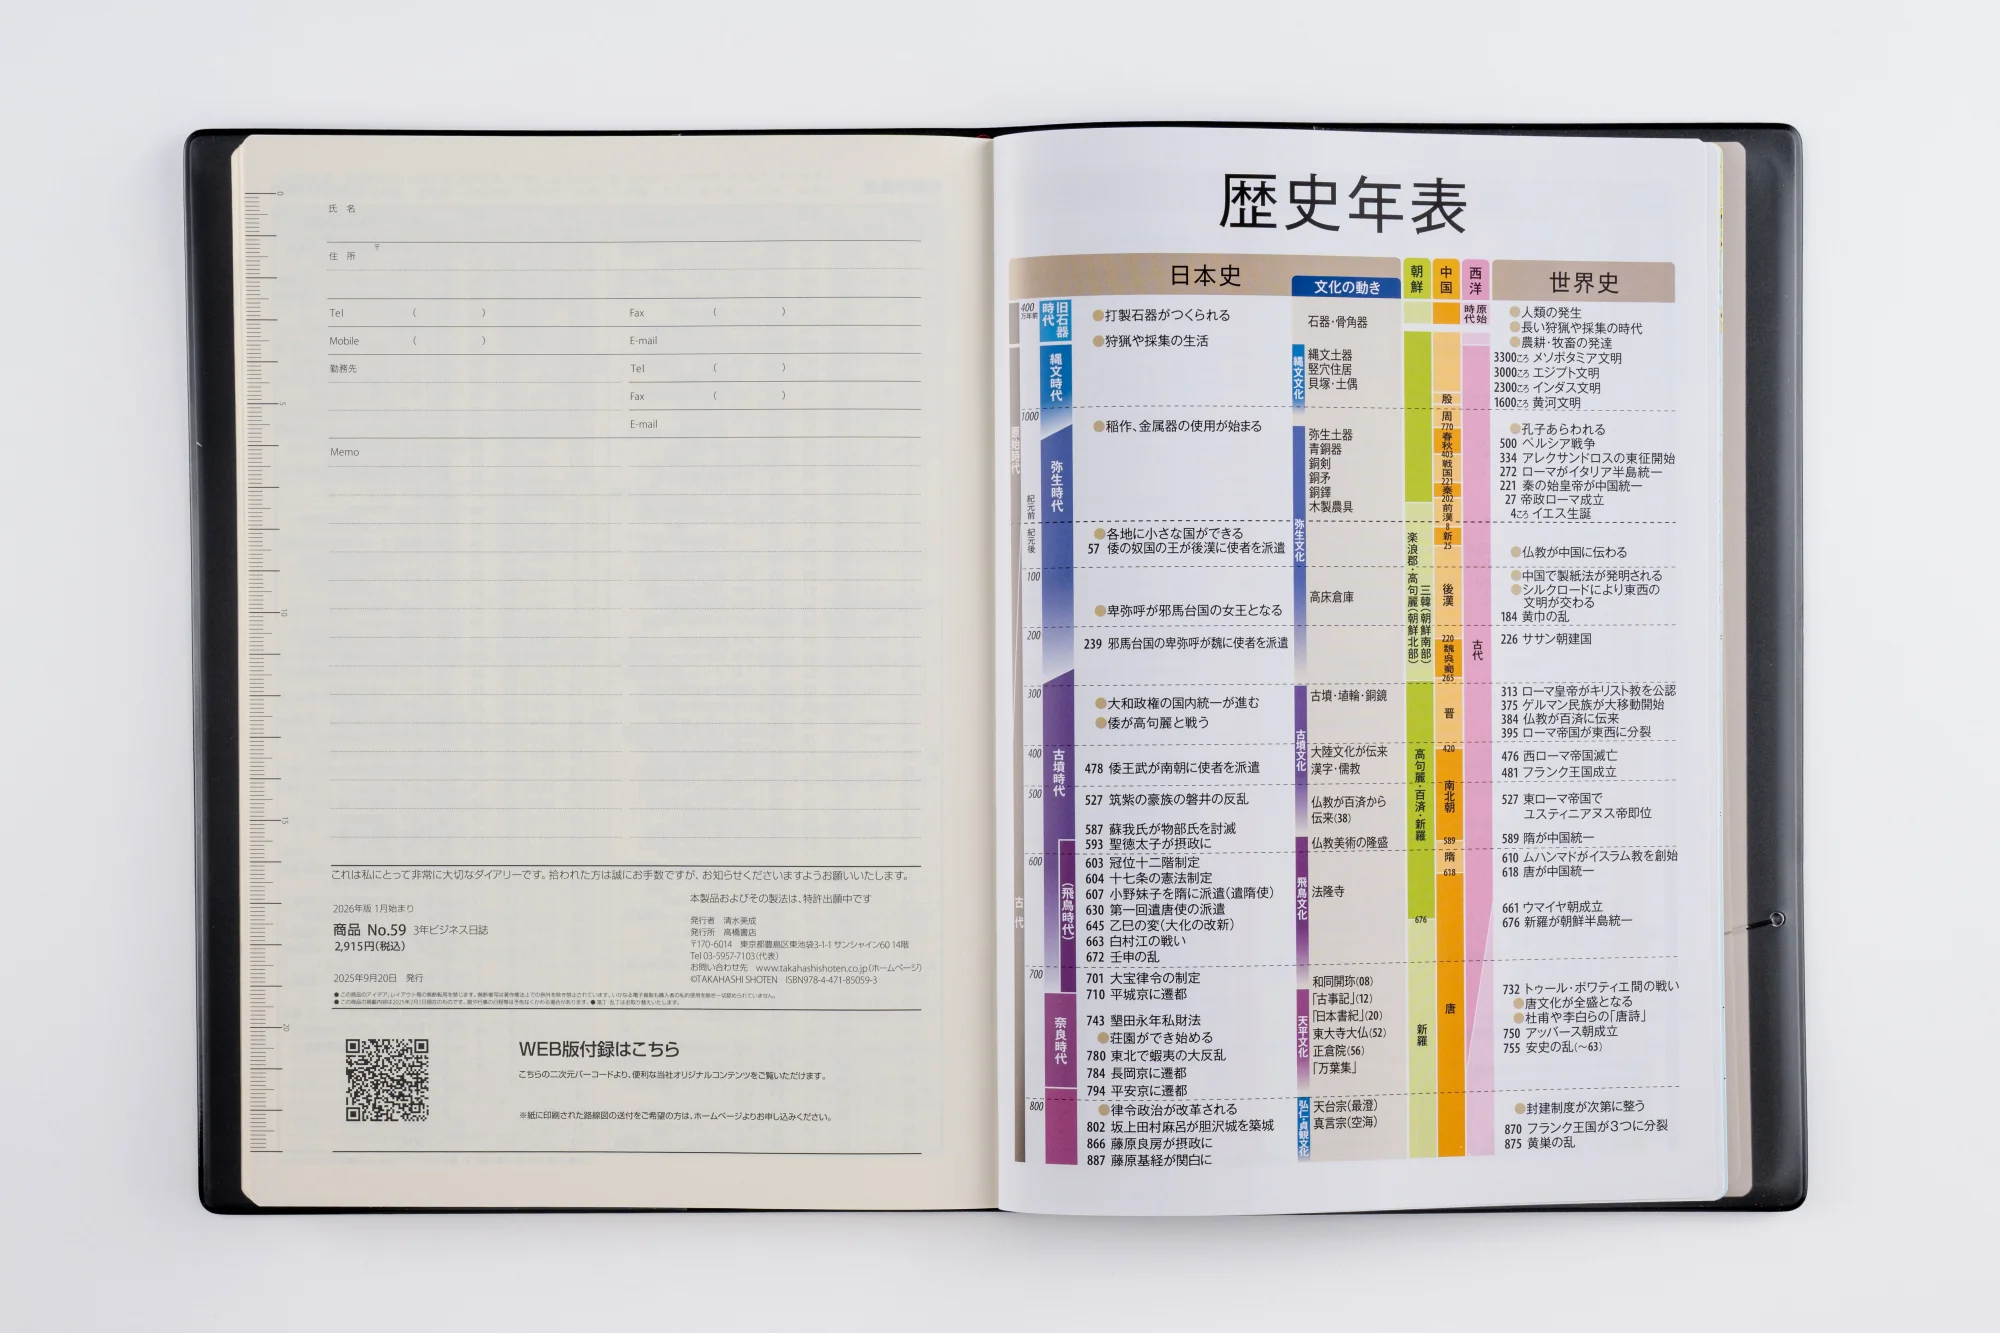 氏 名
住 所
〒
Tel ( ) Fax ( )
Mobile ( ) E-mail
勤務先 Tel ( )
Fax ( )
E-mail
Memo
これは私にとって非常に大切なダイアリーです。拾われた方は誠にお手数ですが、お知らせくださいますようお願いいたします。
本製品およびその製法は、特許出願中です
2026年版 1月始まり
商品 No.59 3年ビジネス日誌
2,915円(税込)
2025年9月20日 発行
発行者 清水美成
発行所 高橋書店
〒170-6014 東京都豊島区東池袋3-1-1 サンシャイン60 14階
Tel 03-5957-7103(代表)
お問い合わせ先 www.takahashishoten.co.jp(ホームページ)
©TAKAHASHI SHOTEN ISBN978-4-471-85059-3
WEB版付録はこちら
こちらの二次元バーコードより、便利な当社オリジナルコンテンツをご覧いただけます。
※紙に印刷された路線図の送付をご希望の方は、ホームページよりお申し込みください。
0
5
10
15
20
歴史年表
日本史
文化の動き
朝鮮
中国
西洋
世界史
400万年前
1000
紀元前
紀元後
100
200
300
400
500
600
700
800
原始時代
古代
旧石器時代
縄文時代
弥生時代
古墳時代
(飛鳥時代)
奈良時代
●打製石器がつくられる
●狩猟や採集の生活
●稲作、金属器の使用が始まる
●各地に小さな国ができる
57 倭の奴国の王が後漢に使者を派遣
●卑弥呼が邪馬台国の女王となる
239 邪馬台国の卑弥呼が魏に使者を派遣
●大和政権の国内統一が進む
●倭が高句麗と戦う
478 倭王武が南朝に使者を派遣
527 筑紫の豪族の磐井の反乱
587 蘇我氏が物部氏を討滅
593 聖徳太子が摂政に
603 冠位十二階制定
604 十七条の憲法制定
607 小野妹子を隋に派遣(遣隋使)
630 第一回遣唐使の派遣
645 乙巳の変(大化の改新)
663 白村江の戦い
672 壬申の乱
701 大宝律令の制定
710 平城京に遷都
743 墾田永年私財法
●荘園ができ始める
780 東北で蝦夷の大反乱
784 長岡京に遷都
794 平安京に遷都
●律令政治が改革される
802 坂上田村麻呂が胆沢城を築城
866 藤原良房が摂政に
887 藤原基経が関白に
縄文文化
弥生文化
古墳文化
飛鳥文化
天平文化
弘仁・貞観文化
石器・骨角器
縄文土器
竪穴住居
貝塚・土偶
弥生土器
青銅器
銅剣
銅矛
銅鐸
木製農具
高床倉庫
古墳・埴輪・銅鏡
大陸文化が伝来
漢字・儒教
仏教が百済から
伝来(38)
仏教美術の隆盛
法隆寺
和同開珎(08)
「古事記」(12)
「日本書紀」(20)
東大寺大仏(52)
正倉院(56)
「万葉集」
天台宗(最澄)
真言宗(空海)
楽浪郡・高句麗(朝鮮北部)
三韓(朝鮮南部)
高句麗・百済・新羅
676
新羅
殷
周
770
春秋
403
戦国
221
秦
202
前漢
8
新
25
後漢
220
魏呉蜀
265
晋
420
南北朝
589
隋
618
唐
原始時代
古代
●人類の発生
●長い狩猟や採集の時代
●農耕・牧畜の発達
3300ころ メソポタミア文明
3000ころ エジプト文明
2300ころ インダス文明
1600ころ 黄河文明
●孔子あらわれる
500 ペルシア戦争
334 アレクサンドロスの東征開始
272 ローマがイタリア半島統一
221 秦の始皇帝が中国統一
27 帝政ローマ成立
4ころ イエス生誕
●仏教が中国に伝わる
●中国で製紙法が発明される
●シルクロードにより東西の
文明が交わる
184 黄巾の乱
226 ササン朝建国
313 ローマ皇帝がキリスト教を公認
375 ゲルマン民族が大移動開始
384 仏教が百済に伝来
395 ローマ帝国が東西に分裂
476 西ローマ帝国滅亡
481 フランク王国成立
527 東ローマ帝国で
ユスティニアヌス帝即位
589 隋が中国統一
610 ムハンマドがイスラム教を創始
618 唐が中国統一
661 ウマイヤ朝成立
676 新羅が朝鮮半島統一
732 トゥール・ポワティエ間の戦い
●唐文化が全盛となる
●杜甫や李白らの「唐詩」
750 アッバース朝成立
755 安史の乱(〜63)
●封建制度が次第に整う
870 フランク王国が3つに分裂
875 黄巣の乱